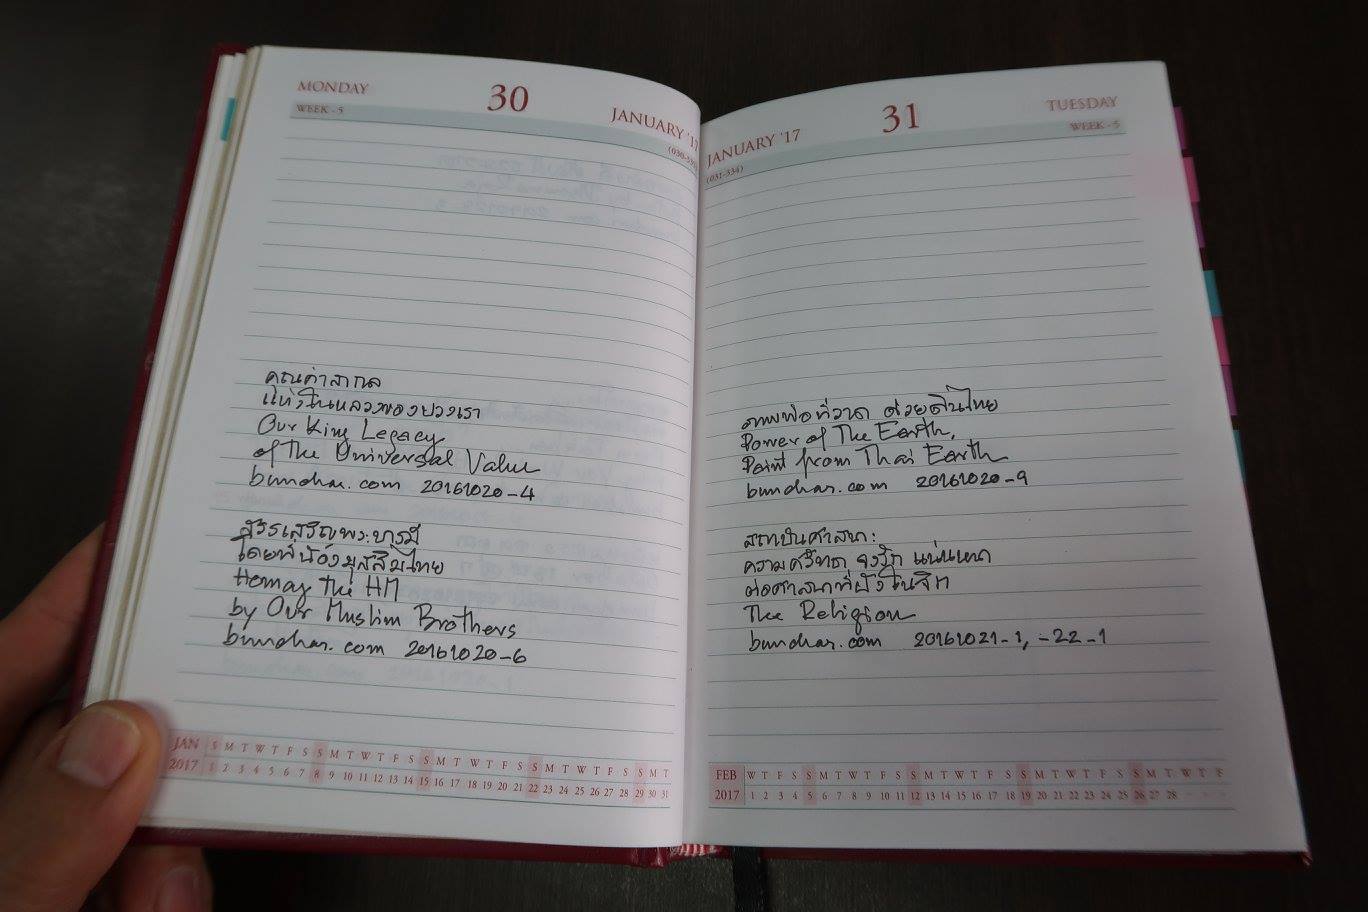 MONDAY
30
JANUARY '17
WEEK - 5
คุณค่าสากล
แห่งในหลวงของปวงเรา
Our King Legacy
of The Universal Value
bunchar.com 20161020-4
สรรเสริญพระบารมี
โดยพี่น้องมุสลิมไทย
Homay The HM
by Our Muslim Brothers
bunchar.com 20161020-6
JAN S M T W T F S S M T W T F S S M T W T F S S M T W T F S S M T
2017 1 2 3 4 5 6 7 8 9 10 11 12 13 14 15 16 17 18 19 20 21 22 23 24 25 26 27 28 29 30 31
31
TUESDAY
JANUARY '17
WEEK - 5
(031-334)
ภาพพ่อที่วาด ด้วยดินไทย
Power of The Earth,
Paint from Thai Earth
bunchar.com 20161020-9
สถาบันศาสนา:
ความศรัทธา จงรัก แน่นหนา
ต่อศาสนาที่ฝังในจิต
The Religion
bunchar.com 20161021-1, -22-1
FEB W T F S S M T W T F S S M T W T F S S M T W T F S S M T W T F
2017 1 2 3 4 5 6 7 8 9 10 11 12 13 14 15 16 17 18 19 20 21 22 23 24 25 26 27 28